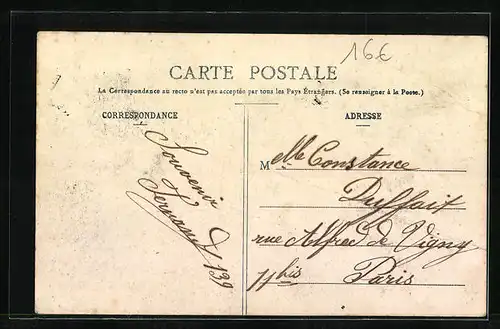 16€
CARTE POSTALE
La Correspondance au recto n'est pas acceptée par tous les Pays Étrangers. (Se renseigner à la Poste.)
CORRESPONDANCE
ADRESSE
Souvenir
Fernand
Melle Constance
Duffait
rue Alfred de Vigny
11 bis
Paris